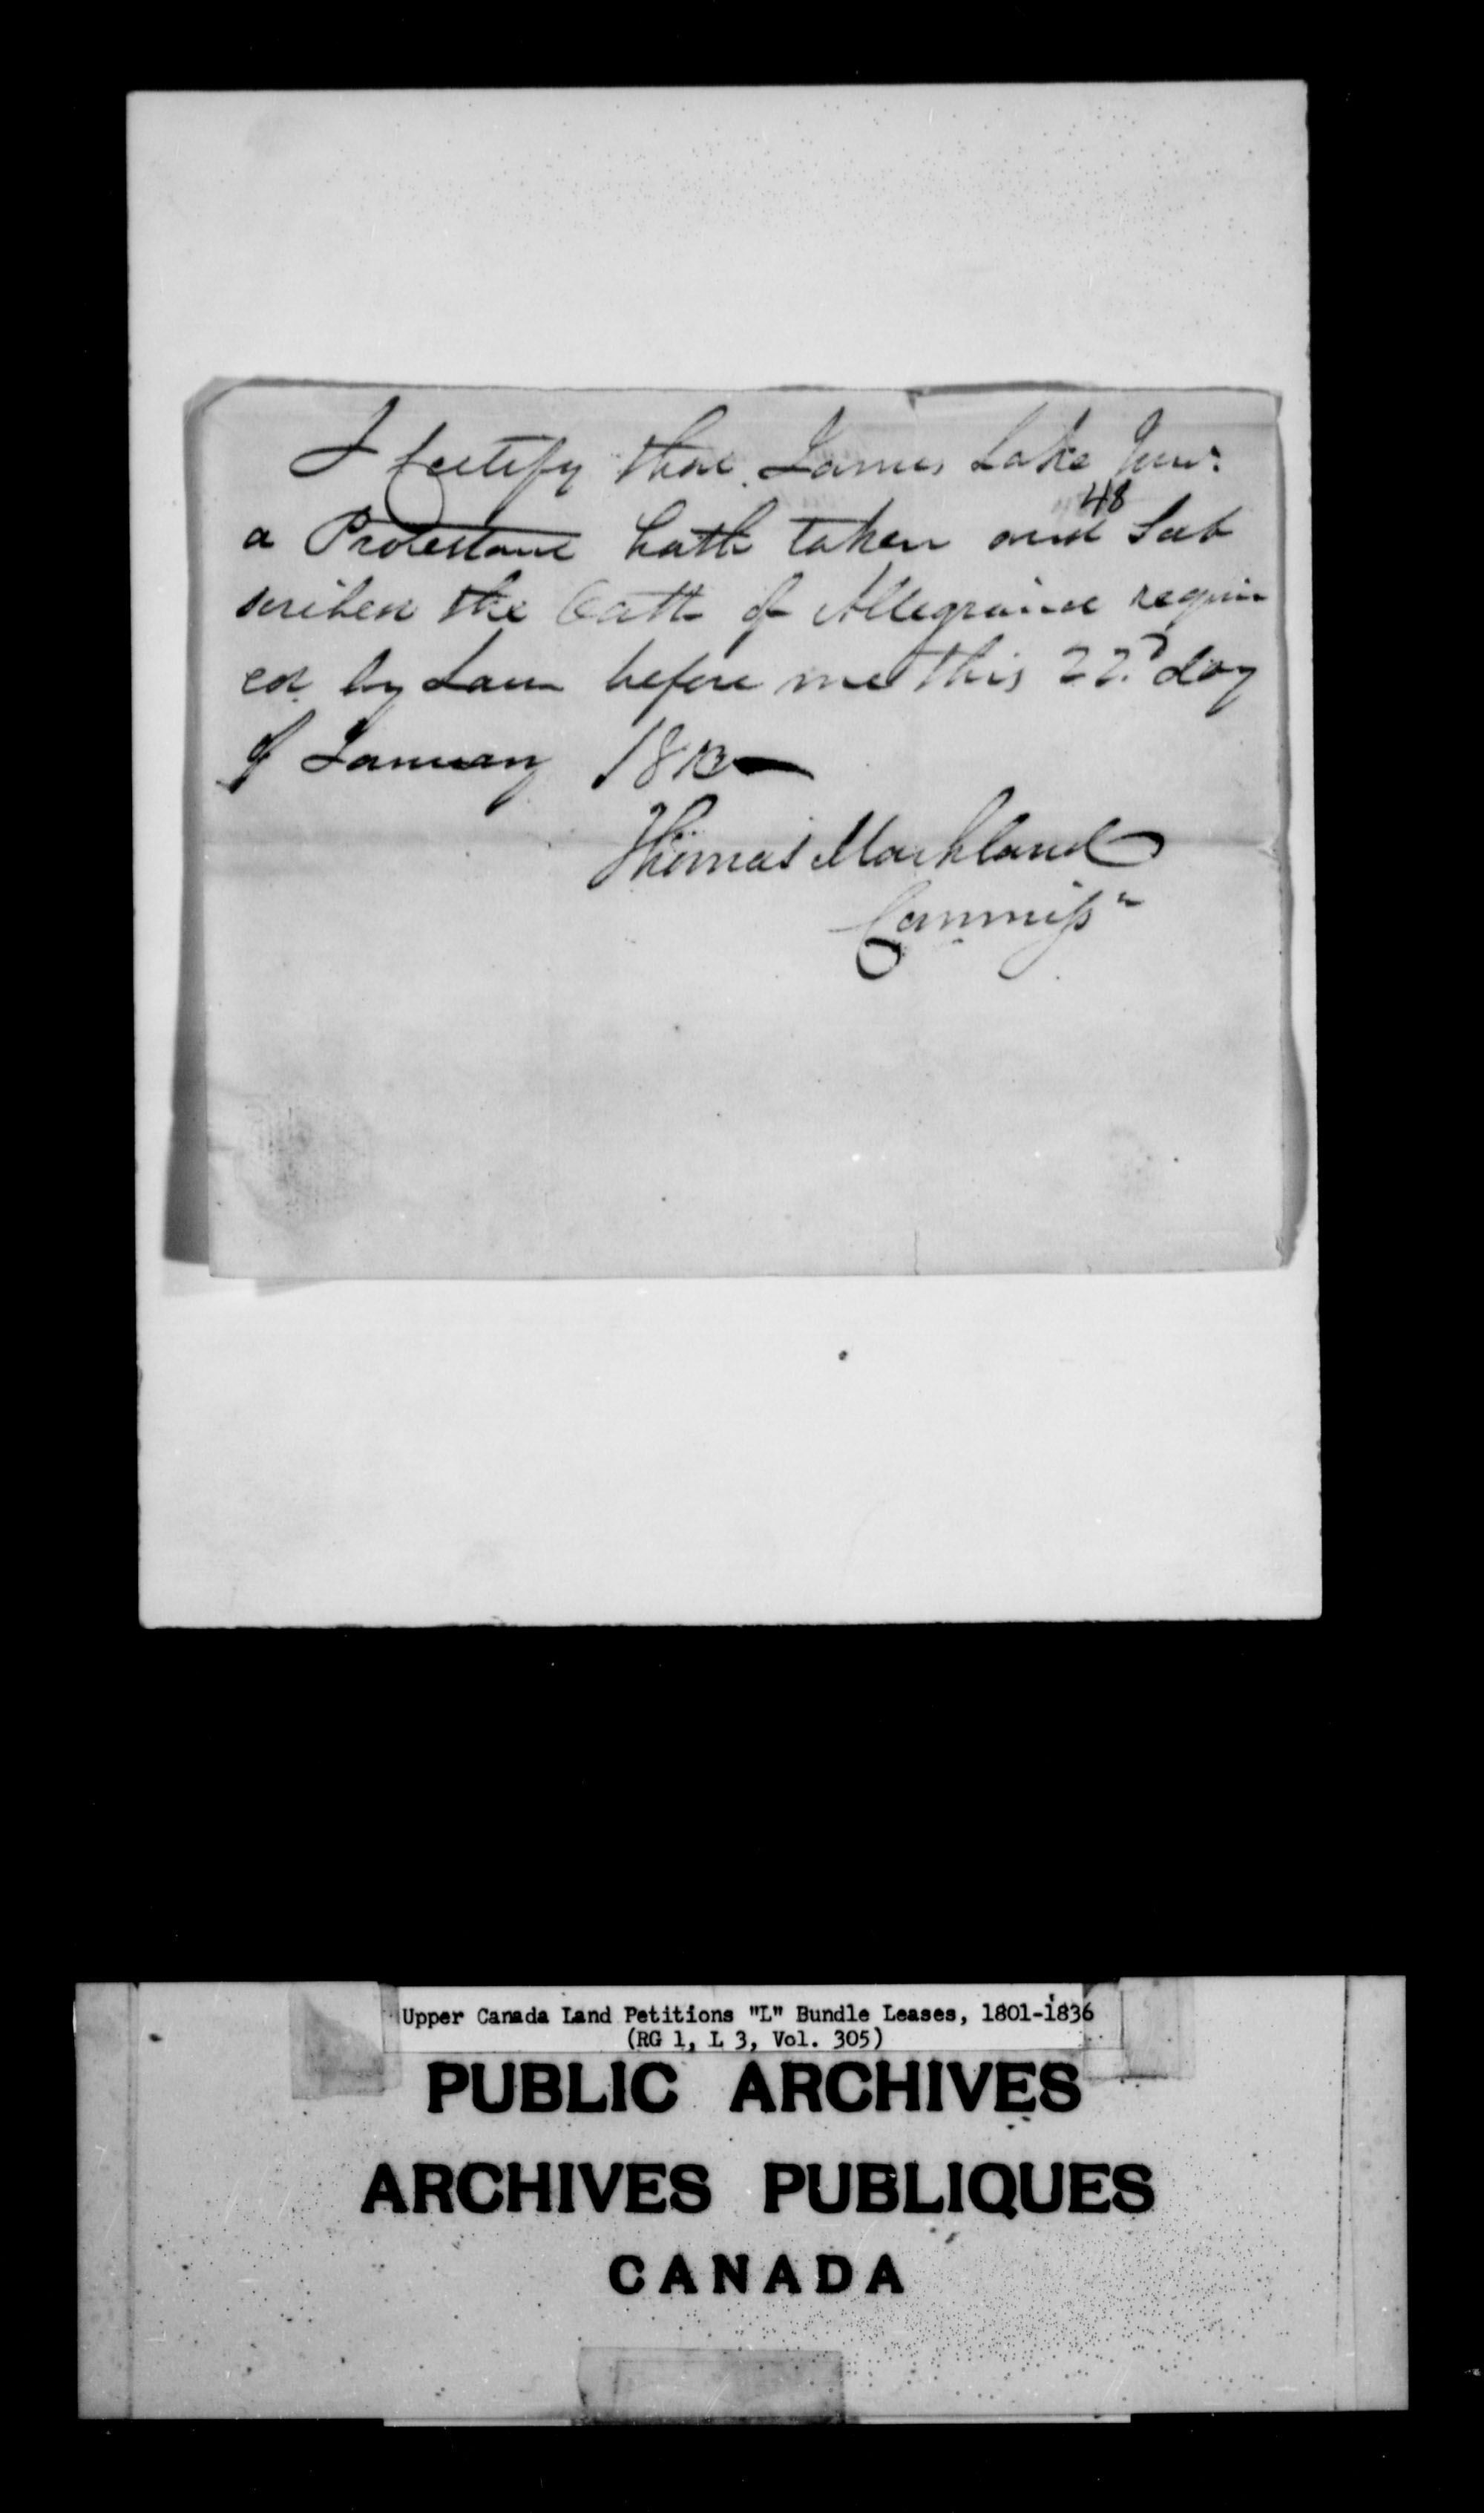 I Certify that James Lake Junr.
48
a Protestant hath taken and Sub
scribed the Oath of Allegiance requir
ed by Law before me this 22d day
of January
Thomas Markland
Commissr
Upper Canada Land Petitions "L" Bundle Leases, 1801-1836
(RG 1, L 3, Vol. 305)
PUBLIC ARCHIVES
ARCHIVES PUBLIQUES
CANADA